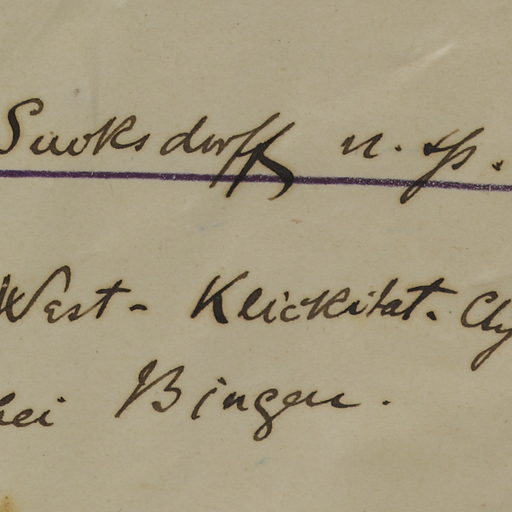 Suksdorff n. sp.
West-Klickitat-Cty
bei Bingen.